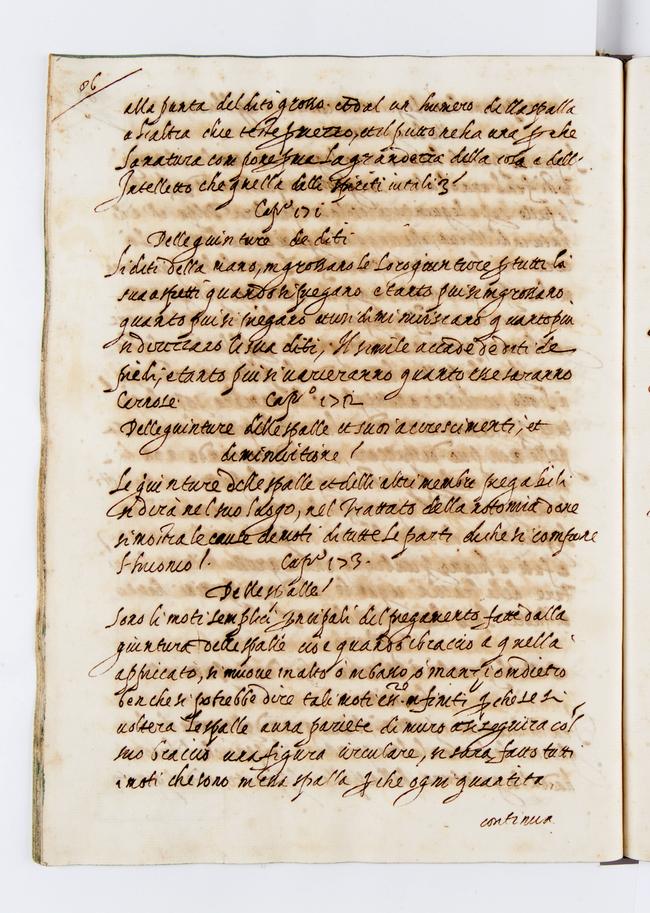 86
alla punta del dito grosso. et dal un humero della spalla
a l'altra due teste e mezzo, et il putto ne ha una perche
la natura compone pria la grandezza della cosa e dell'
Intelletto che quella delli spiriti vitali
Capo 171
Delle giunture de diti
Li diti della mano, ingrossano le loro giunture per tutti li
sua aspetti quando si piegano e tanto piu s'ingrossano
quanto piu si piegano et cusi diminuiscano quanto piu
si dirizzano li sua diti, Il simile accade de diti de
piedi, e tanto piu si varieranno quanto che saranno
Carnose. Capo 172
Delle giunture delle spalle et suoi accrescimenti, et
diminuitione
Le giunture delle spalle et delli altri membre piegabili
si dirà nel suo luogo, nel Trattato della notomia dove
si mostra le cause de moti di tutte le parti di che si compone
l'huomo. Capo 173.
Delle spalle
Sono li moti semplici principali del piegamento fatto dalla
giuntura delle spalle cioe quando il braccio a quella
appiccato, si muove in alto ò in basso, ò inanzi o indietro
benche si potrebbe dire tali moti infiniti perche se si
volterà le spalle a una pariete di muro
suo braccio una figura circulare, si sara fatto tutti
i moti che sono in essa spalla perche ogni quantita
continua